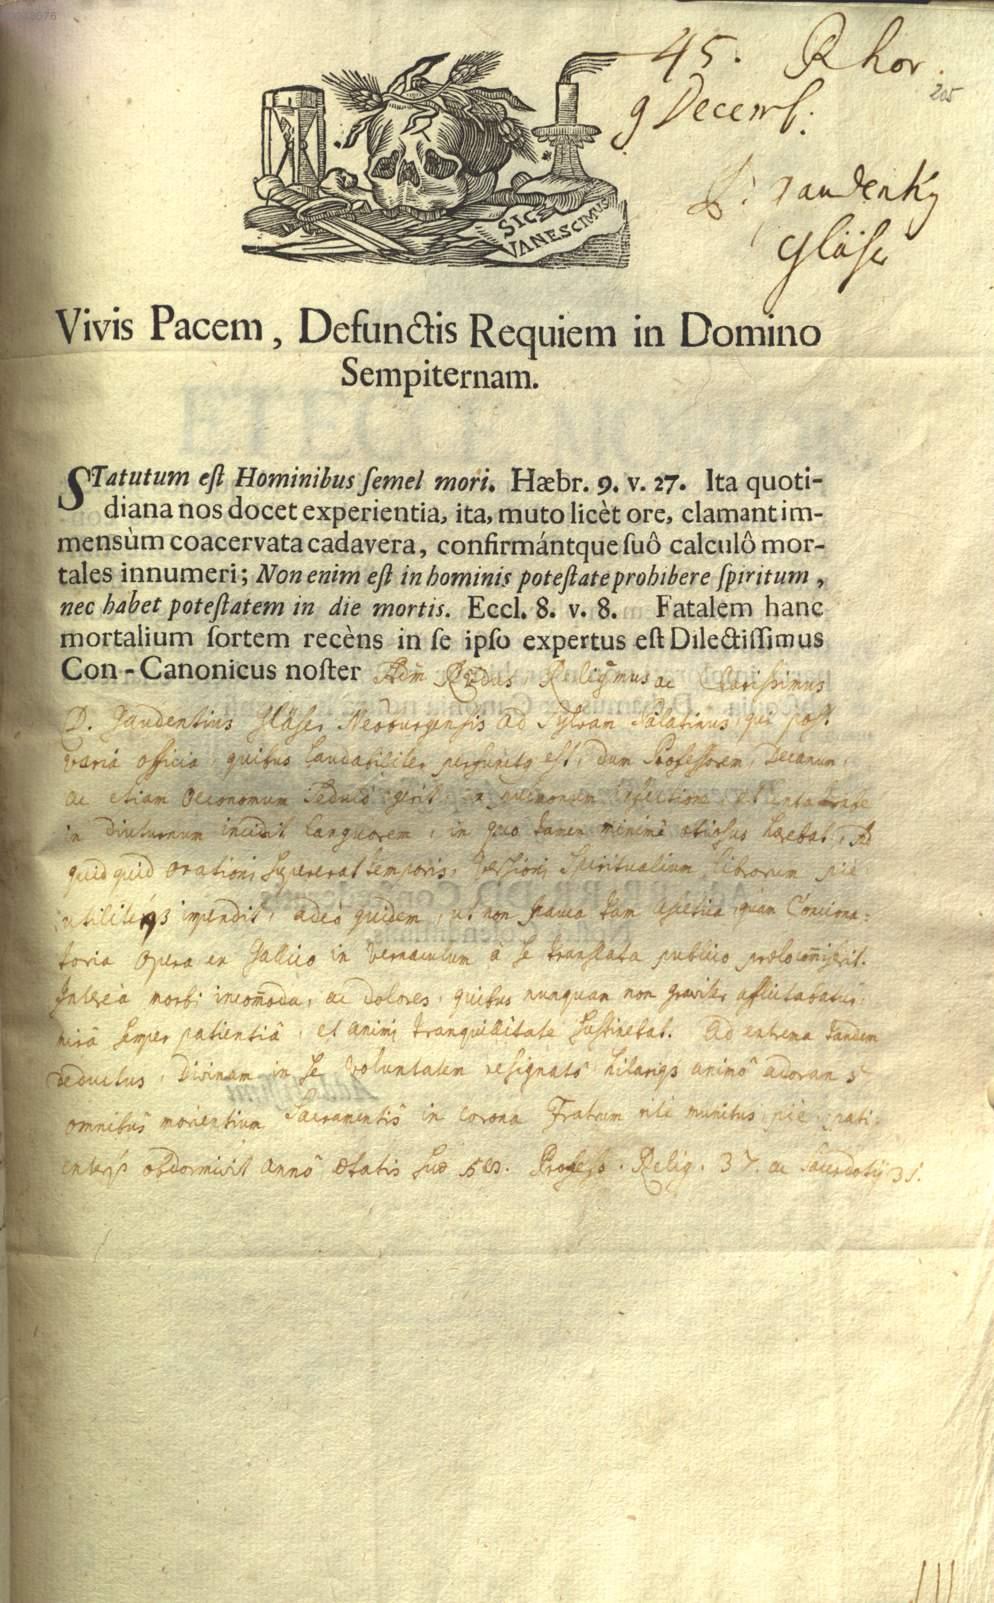 45. Rhor.
9 Decemb:
205
P: Gaudentiy
Gläser
SIC
VANESCIMUS
Vivis Pacem, Defunctis Requiem in Domino
Sempiternam.
STatutum eſt Hominibus ſemel mori. Hæbr. 9. v. 27. Ita quoti-
diana nos docet experientia, ita, muto licèt ore, clamant im-
mensùm coacervata cadavera, confirmántque ſuô calculô mor-
tales innumeri; Non enim eſt in hominis poteſtate prohibere ſpiritum,
nec habet poteſtatem in die mortis. Eccl. 8. v. 8. Fatalem hanc
mortalium ſortem recèns in ſe ipſo expertus eſt Dilectiſſimus
Con-Canonicus noſter Adm̄ R̄dus Religmus ac Clarissimus
D. Gaudentius Gläser Neoburgensis ad Sylvam Palatinus, qui post
varia officia, quibus laudabiliter perfunctq est, dum Professorem, Decanum,
ac etiam Oeconomum sedulò gerit, a pulmonum infectione, et
in diuturnum incidit languorem, in quo tamen minimè otiosus haebat,
quidquid orationi supererat temporis, versioni Spiritualium librorum piè
utiliterq3 impendit, adeò quidem, ut non pauca tam ascetica, quam Conciona-
toria opera ex Gallico in vernaculum à se translata publico
Intereà morbi incom̄oda, ac dolores, quibus nunquam non graviter afflictabatur,
mirâ semper patientiâ, et animi tranquillitate sustinebat. Ad extrema tandem
deductus, Divinam in se voluntatem resignatô hilariq3 animô adorans
omnibus morientium Sacramentis in corona Fratrum ritè munitus piè, pati-
enterq3 obdormivit annô ætatis suæ Profess. Relig. 37. ac Sacerdotij 31.